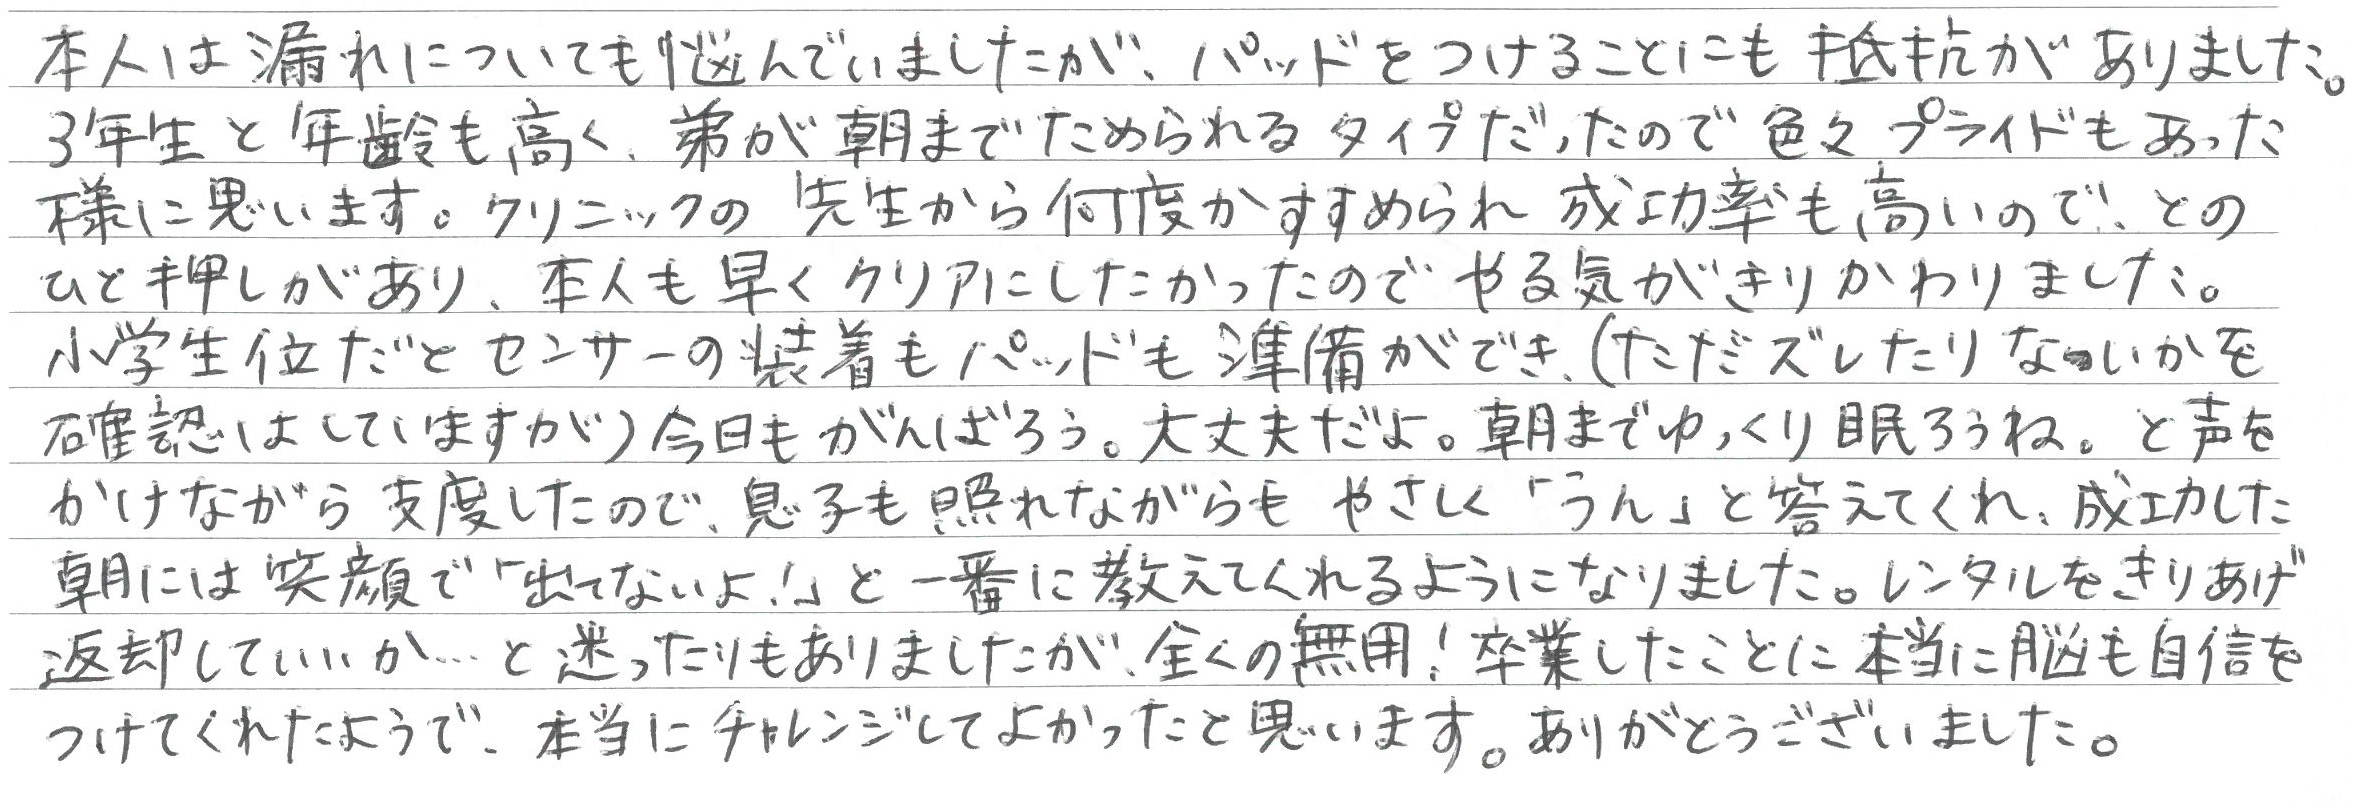 本人は漏れについても悩んでいましたが、パッドをつけることにも抵抗がありました。
3年生と年齢も高く、弟が朝までためられるタイプだったので色々プライドもあった
様に思います。クリニックの先生から何度かすすめられ成功率も高いので、との
ひと押しがあり、本人も早くクリアにしたかったのでやる気がきりかわりました。
小学生位だとセンサーの装着もパッドも準備ができ、(ただズレたりないかを
確認はしていますが)今日もがんばろう。大丈夫だよ。朝までゆっくり眠ろうね。と声を
かけながら支度したので、息子も照れながらもやさしく「うん」と答えてくれ、成功した
朝には笑顔で「出てないよ!」と一番に教えてくれるようになりました。レンタルをきりあげ
返却していいか…と迷ったりもありましたが、全くの無用!卒業したことに本当に脳も自信を
つけてくれたようで、本当にチャレンジしてよかったと思います。ありがとうございました。